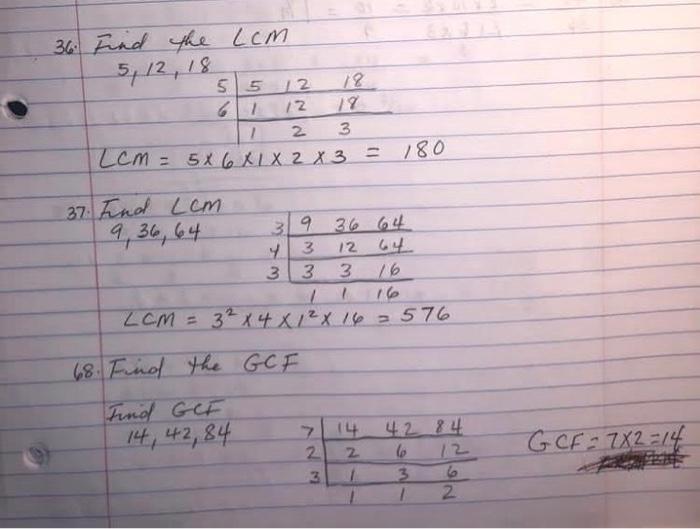 36. Find the LCM
5, 12, 18
5 5 12 18
6 1 12 18
1 2 3
LCM = 5 x 6 x 1 x 2 x 3 = 180
37. Find LCM
9, 36, 64
3 9 36 64
4 3 12 64
3 3 3 16
1 1 16
LCM = 3² x 4 x 1² x 16 = 576
68. Find the GCF
Find GCF
14, 42, 84
7 14 42 84
2 2 6 12
3 1 3 6
1 1 2
GCF = 7x2 = 14